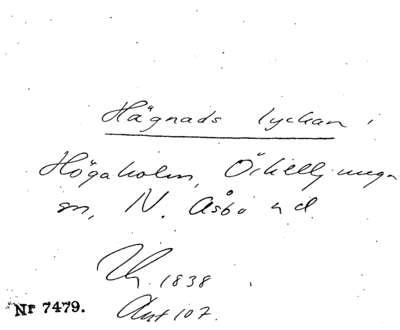 Hägnads lyckan i
Högaholm, Örkelljunga
sn, N. Åsbo hd
1838
Nr 7479. Akt 107.